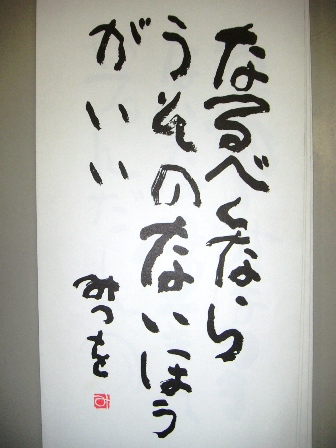 なるべくなら
うそのないほう
がいい
みつを